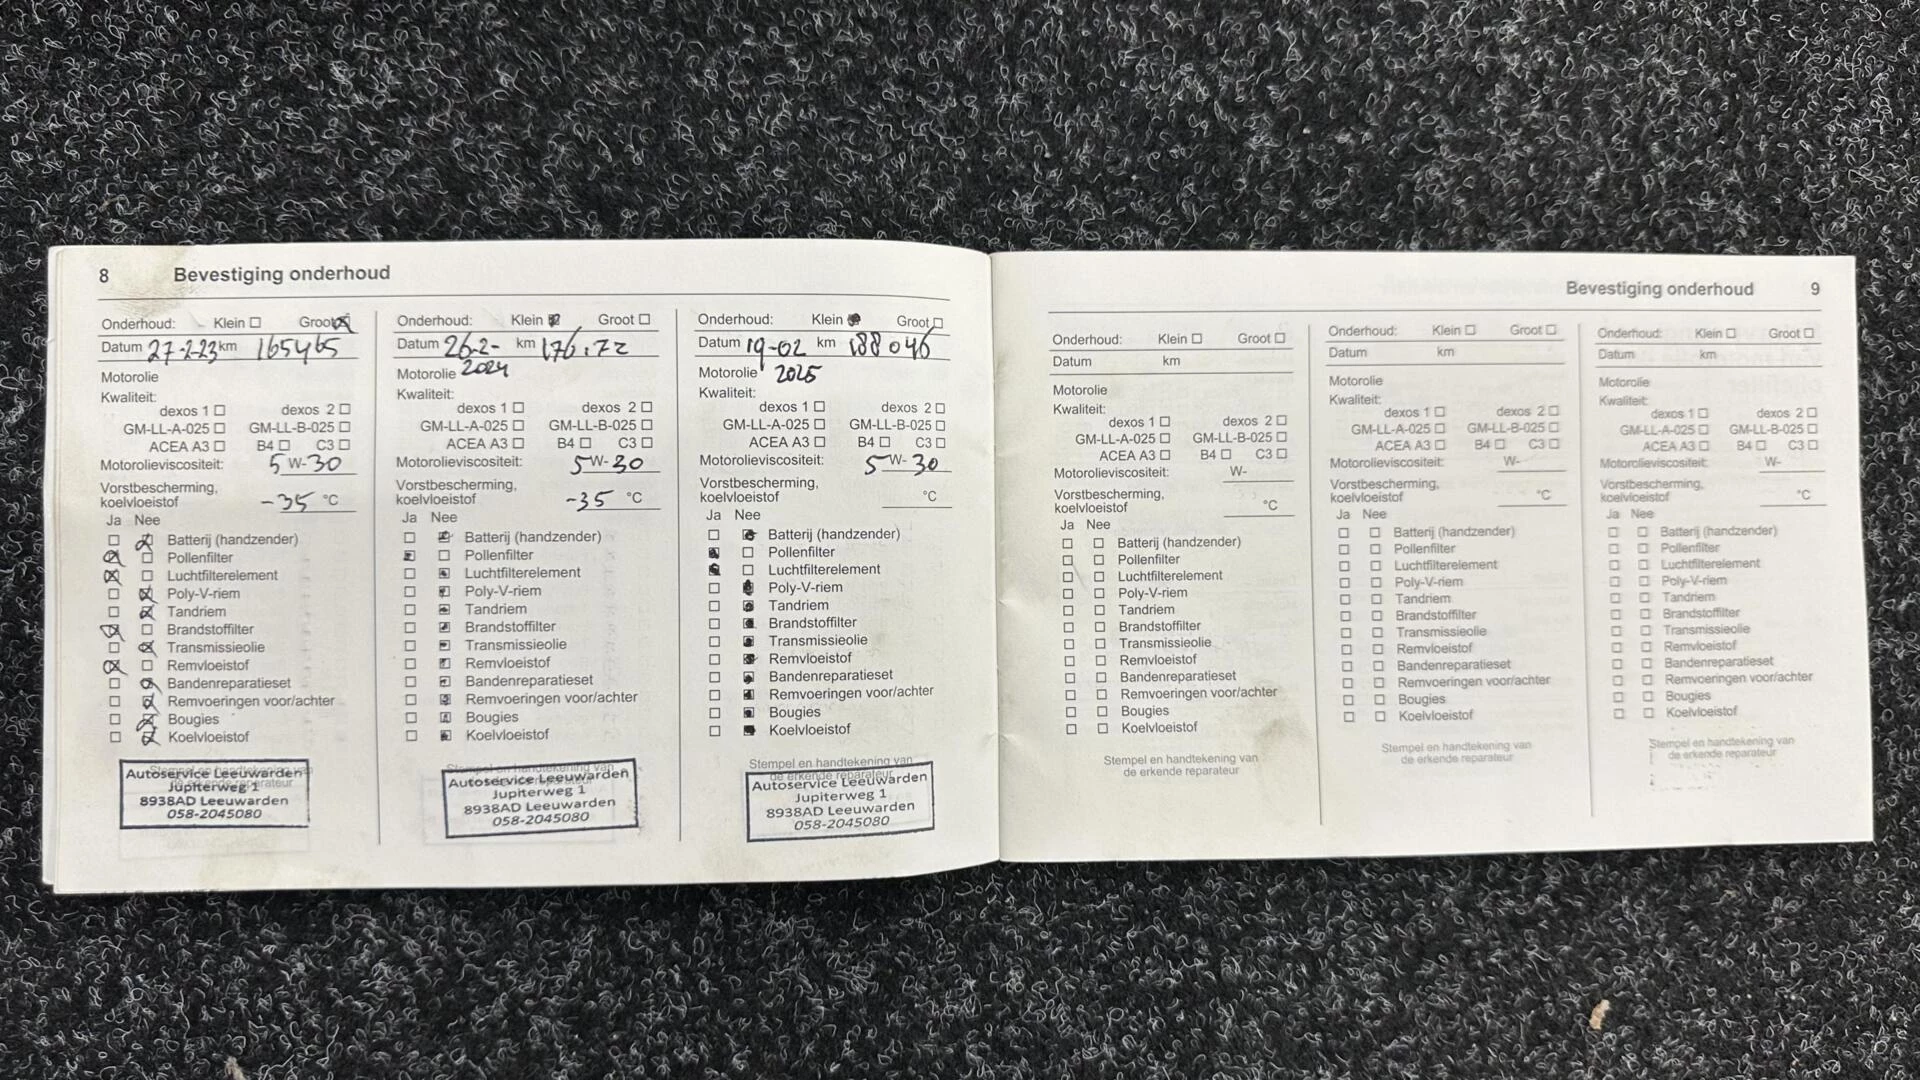 8 Bevestiging onderhoud
Onderhoud: Klein Groot
Datum 27-2-23 km 165465
Motorolie
Kwaliteit:
dexos 1 dexos 2
GM-LL-A-025 GM-LL-B-025
ACEA A3 B4 C3
Motorolieviscositeit: 5 W-30
Vorstbescherming,
koelvloeistof -35 °C
Ja Nee
Batterij (handzender)
Pollenfilter
Luchtfilterelement
Poly-V-riem
Tandriem
Brandstoffilter
Transmissieolie
Remvloeistof
Bandenreparatieset
Remvoeringen voor/achter
Bougies
Koelvloeistof
Stempel en handtekening van
de erkende reparateur
Autoservice Leeuwarden
Jupiterweg 1
8938AD Leeuwarden
058-2045080
Onderhoud: Klein Groot
Datum 26-2- km 176.72
Motorolie 2024
Kwaliteit:
dexos 1 dexos 2
GM-LL-A-025 GM-LL-B-025
ACEA A3 B4 C3
Motorolieviscositeit: 5W-30
Vorstbescherming,
koelvloeistof -35 °C
Ja Nee
Batterij (handzender)
Pollenfilter
Luchtfilterelement
Poly-V-riem
Tandriem
Brandstoffilter
Transmissieolie
Remvloeistof
Bandenreparatieset
Remvoeringen voor/achter
Bougies
Koelvloeistof
Stempel en handtekening van
Autoservice Leeuwarden
Jupiterweg 1
8938AD Leeuwarden
058-2045080
Onderhoud: Klein Groot
Datum 19-02 km 188046
Motorolie 2025
Kwaliteit:
dexos 1 dexos 2
GM-LL-A-025 GM-LL-B-025
ACEA A3 B4 C3
Motorolieviscositeit: 5W-30
Vorstbescherming,
koelvloeistof °C
Ja Nee
Batterij (handzender)
Pollenfilter
Luchtfilterelement
Poly-V-riem
Tandriem
Brandstoffilter
Transmissieolie
Remvloeistof
Bandenreparatieset
Remvoeringen voor/achter
Bougies
Koelvloeistof
Stempel en handtekening van
de erkende reparateur
Autoservice Leeuwarden
Jupiterweg 1
8938AD Leeuwarden
058-2045080
Bevestiging onderhoud 9
Onderhoud: Klein Groot
Datum km
Motorolie
Kwaliteit:
dexos 1 dexos 2
GM-LL-A-025 GM-LL-B-025
ACEA A3 B4 C3
Motorolieviscositeit: W-
Vorstbescherming,
koelvloeistof °C
Ja Nee
Batterij (handzender)
Pollenfilter
Luchtfilterelement
Poly-V-riem
Tandriem
Brandstoffilter
Transmissieolie
Remvloeistof
Bandenreparatieset
Remvoeringen voor/achter
Bougies
Koelvloeistof
Stempel en handtekening van
de erkende reparateur
Onderhoud: Klein Groot
Datum km
Motorolie
Kwaliteit:
dexos 1 dexos 2
GM-LL-A-025 GM-LL-B-025
ACEA A3 B4 C3
Motorolieviscositeit: W-
Vorstbescherming,
koelvloeistof °C
Ja Nee
Batterij (handzender)
Pollenfilter
Luchtfilterelement
Poly-V-riem
Tandriem
Brandstoffilter
Transmissieolie
Remvloeistof
Bandenreparatieset
Remvoeringen voor/achter
Bougies
Koelvloeistof
Stempel en handtekening van
de erkende reparateur
Onderhoud: Klein Groot
Datum km
Motorolie
Kwaliteit:
dexos 1 dexos 2
GM-LL-A-025 GM-LL-B-025
ACEA A3 B4 C3
Motorolieviscositeit: W-
Vorstbescherming,
koelvloeistof °C
Ja Nee
Batterij (handzender)
Pollenfilter
Luchtfilterelement
Poly-V-riem
Tandriem
Brandstoffilter
Transmissieolie
Remvloeistof
Bandenreparatieset
Remvoeringen voor/achter
Bougies
Koelvloeistof
Stempel en handtekening van
de erkende reparateur